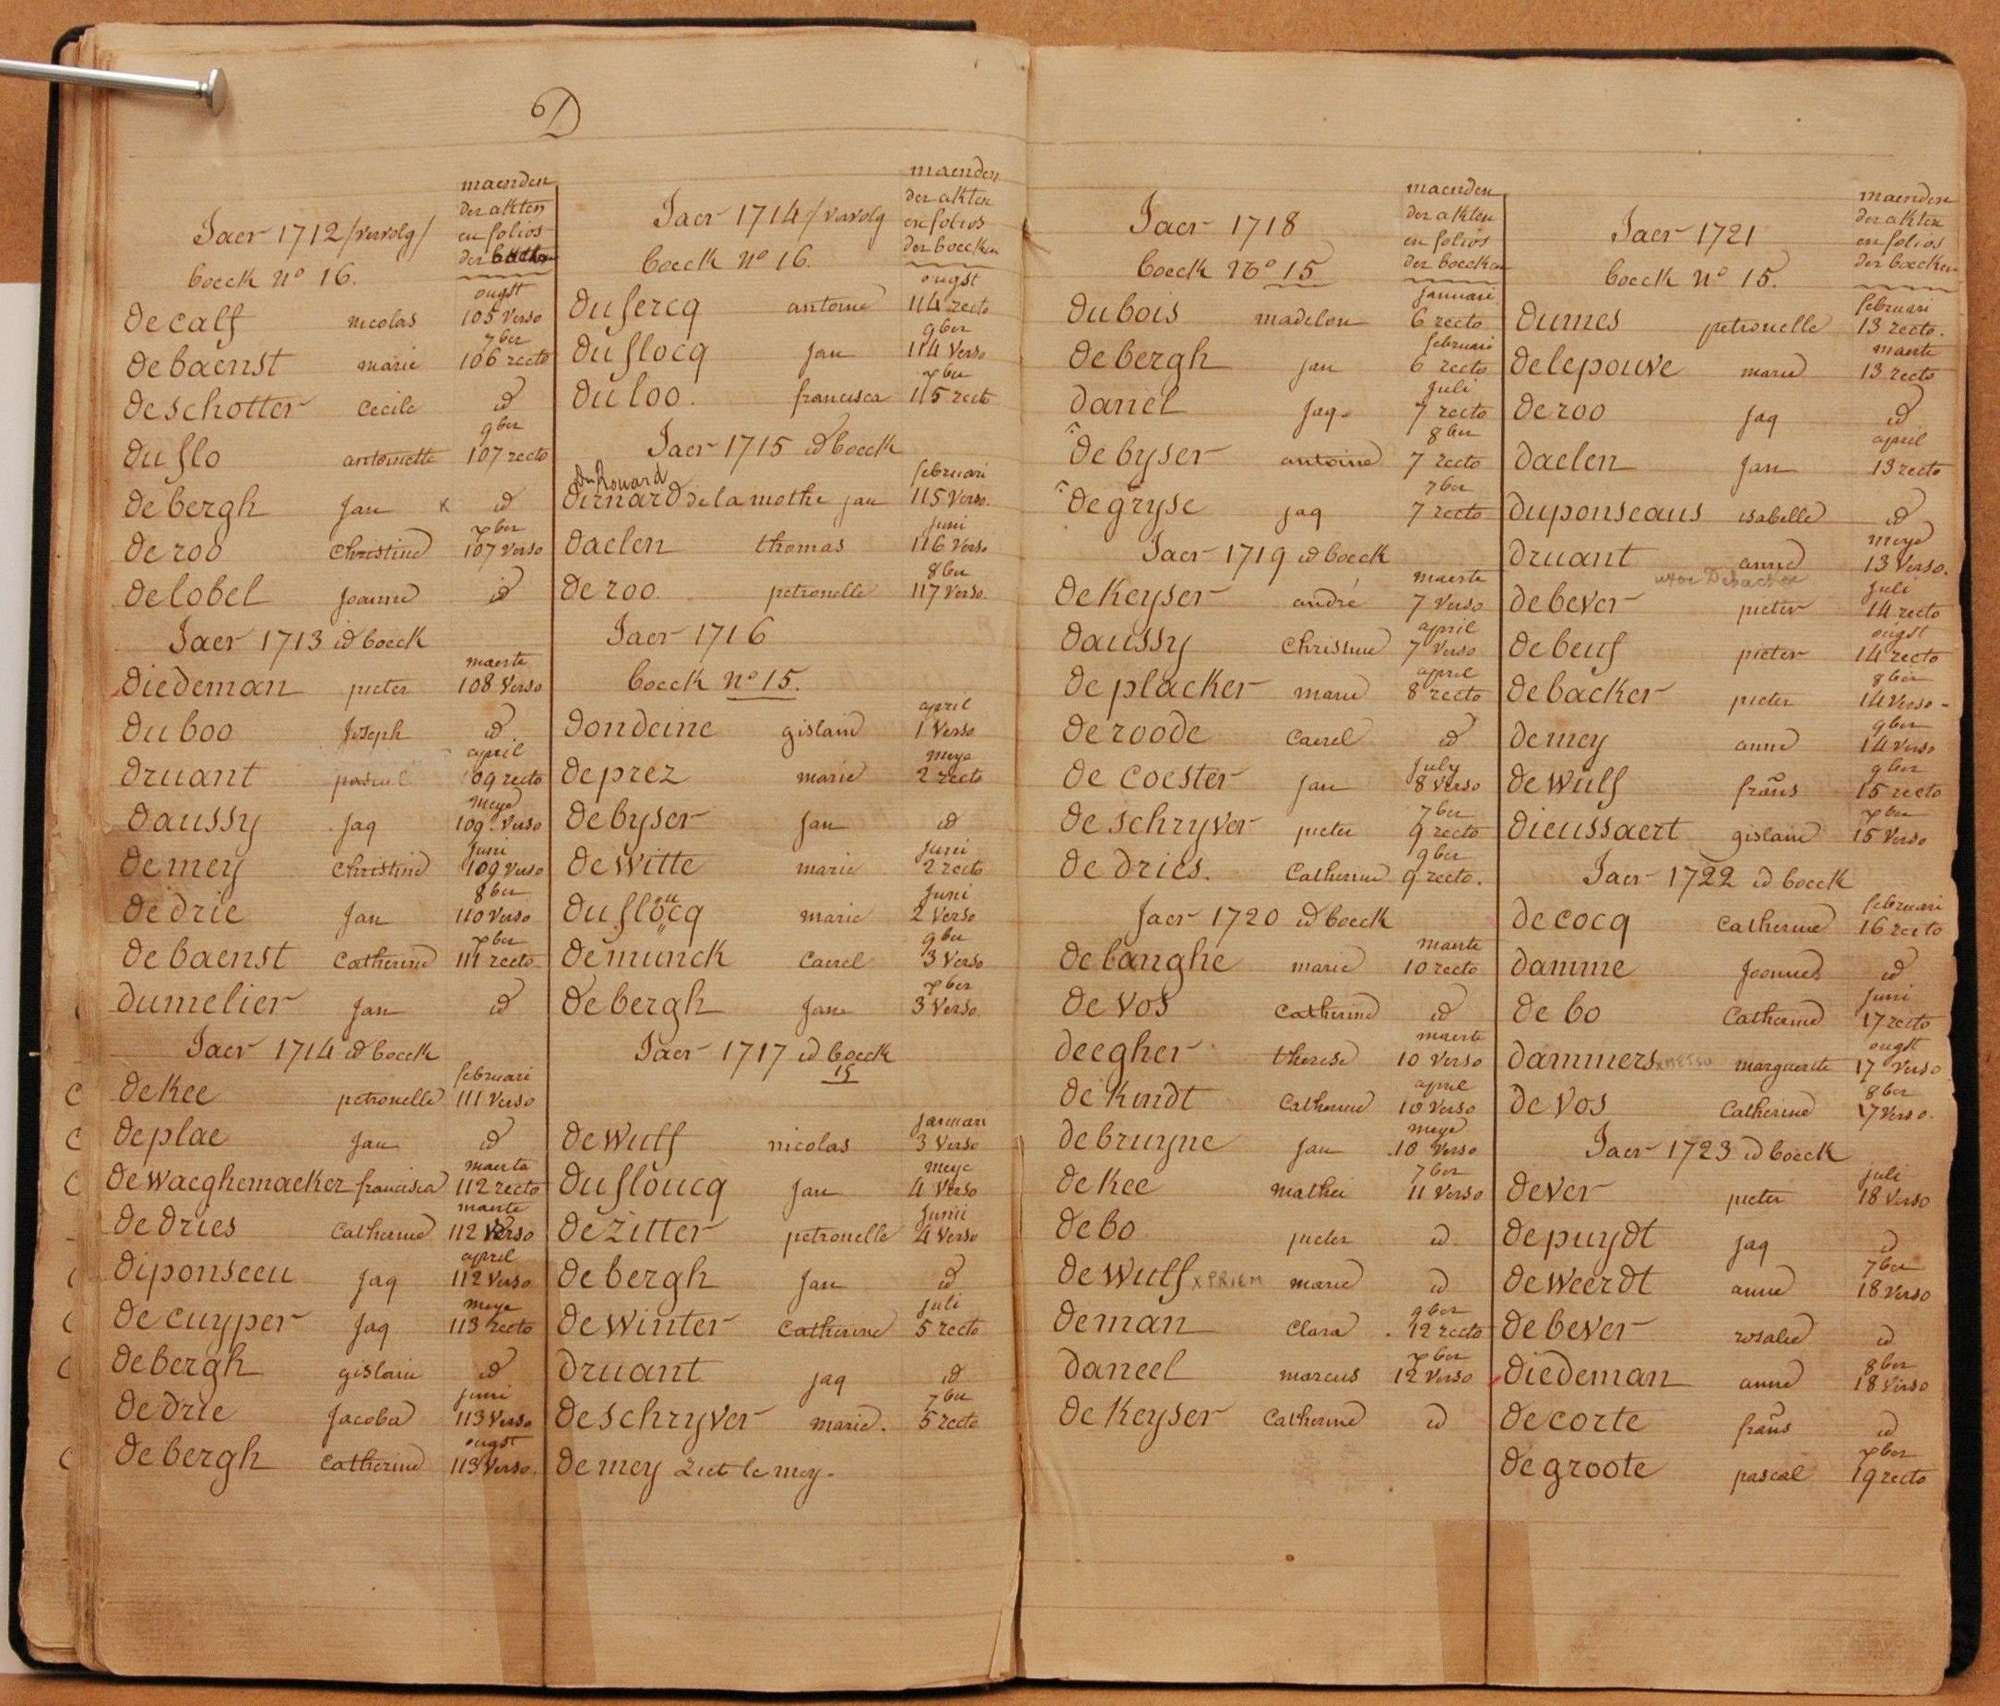 D
Jaer 1712 /vervolg/
maenden
der akten
en folios
der boeken
boeck nº 16.
ougst
de calf nicolas 105 verso
7ber
de baenst marie 106 recto
de schotter Cecile id
9ber
du flo antoinette 107 recto
de bergh Jan x id
xber
de roo Christine 107 verso
de lobel Joanne id
Jaer 1713 id boeck
maerte
diedeman pieter 108 verso
du boo Joseph id
april
druant pascal 109 recto
meye
daussy Jaq 109 verso
juni
de mey Christine 109 verso
8ber
de drie Jan 110 verso
xber
de baenst Catherine 111 recto
dumelier Jan id
Jaer 1714 id boeck
februari
de Kee petronelle 111 verso
de plae Jan id
maerte
de waeghemaeker francisca 112 recto
maerte
de dries Catherine 112 verso
april
diponseeu Jaq 112 verso
meye
de cuyper Jaq 113 recto
de bergh gislain id
juni
de drie Jacoba 113 verso
ougst
de bergh Catherine 113 verso
Jaer 1714 /vervolg
maenden
der akten
en folios
der boecken
boeck nº 16.
ougst
du fercq antoine 114 recto
9ber
du flocq Jan 114 verso
xber
du loo. francisca 115 recto
Jaer 1715 id boeck
februari
du Rouard
dernard de la mothe jan 115 verso.
juni
daelen thomas 116 verso
8ber
de roo petronelle 117 verso.
Jaer 1716
boeck nº 15.
april
dondeine gislain 1 verso
meye
de prez marie 2 recto
de byser Jan id
juni
de witte marie 2 recto
juni
du flocq marie 2 verso
9ber
de munck Caerel 3 verso
xber
de bergh Jane 3 verso.
Jaer 1717 id boeck
15
januari
de wulf nicolas 3 verso
meye
du floucq Jan 4 verso
junii
de zitter petronelle 4 verso
de bergh Jan id
juli
de winter Catherine 5 recto
druant jaq id
7ber
de schryver marie. 5 recto
de mey ziet le mey.
Jaer 1718
maenden
der akten
en folios
der boecken
boeck nº 15
januari
du bois madelon 6 recto
februari
de bergh jan 6 recto
juli
danel jaq. 7 recto
8ber
de byser antoine 7 recto
7ber
de gryse jaq 7 recto
Jaer 1719 id boeck
maerte
de Keyser andré 7 verso
april
daussy Christine 7 verso
april
de placker marie 8 recto
de roode Caerel id
july
de coester jan 8 verso
7ber
de schryver pieter 9 recto
9ber
de dries. Catherine 9 recto.
Jaer 1720 id boeck
maerte
de banghe marie 10 recto
de vos Catherine id
maerte
deegher therese 10 verso
april
de Kindt Catherine 10 verso
meye
de bruyne Jan 10 verso
7ber
de Kee mathei 11 verso
de bo pieter id
de wulf x PRIEM marie id
9ber
de man Clara 12 recto
xber
daneel marcus 12 verso
de Keyser Catherine id
Jaer 1721
maenden
der akten
en folios
der boecken
boeck nº 15.
februari
dumes petronelle 13 recto.
maerte
de lepouve marie 13 recto
de roo jaq id
april
daelen jan 13 recto
duponseaus isabelle id
meye
druant anne 13 verso.
uxor Debacker
juli
de bever pieter 14 recto
ougst
de beuf pieter 14 recto
8ber
de backer pieter 14 verso
9ber
de mey anne 14 verso
9ber
de wulf frans 15 recto
xber
dieussaert gislain 15 verso
Jaer 1722 id boeck
februari
de cocq Catherine 16 recto
damme Joannes id
juni
de bo Catherine 17 recto
ougst
dammers marguerite 17 verso
8ber
de vos Catherine 17 verso.
Jaer 1723 id boeck
juli
de ver pieter 18 verso
de puydt jaq id
7ber
de weerdt anne 18 verso
de bever rosalie id
8ber
diedeman anne 18 verso
de corte frans id
xber
de groote pascal 19 recto